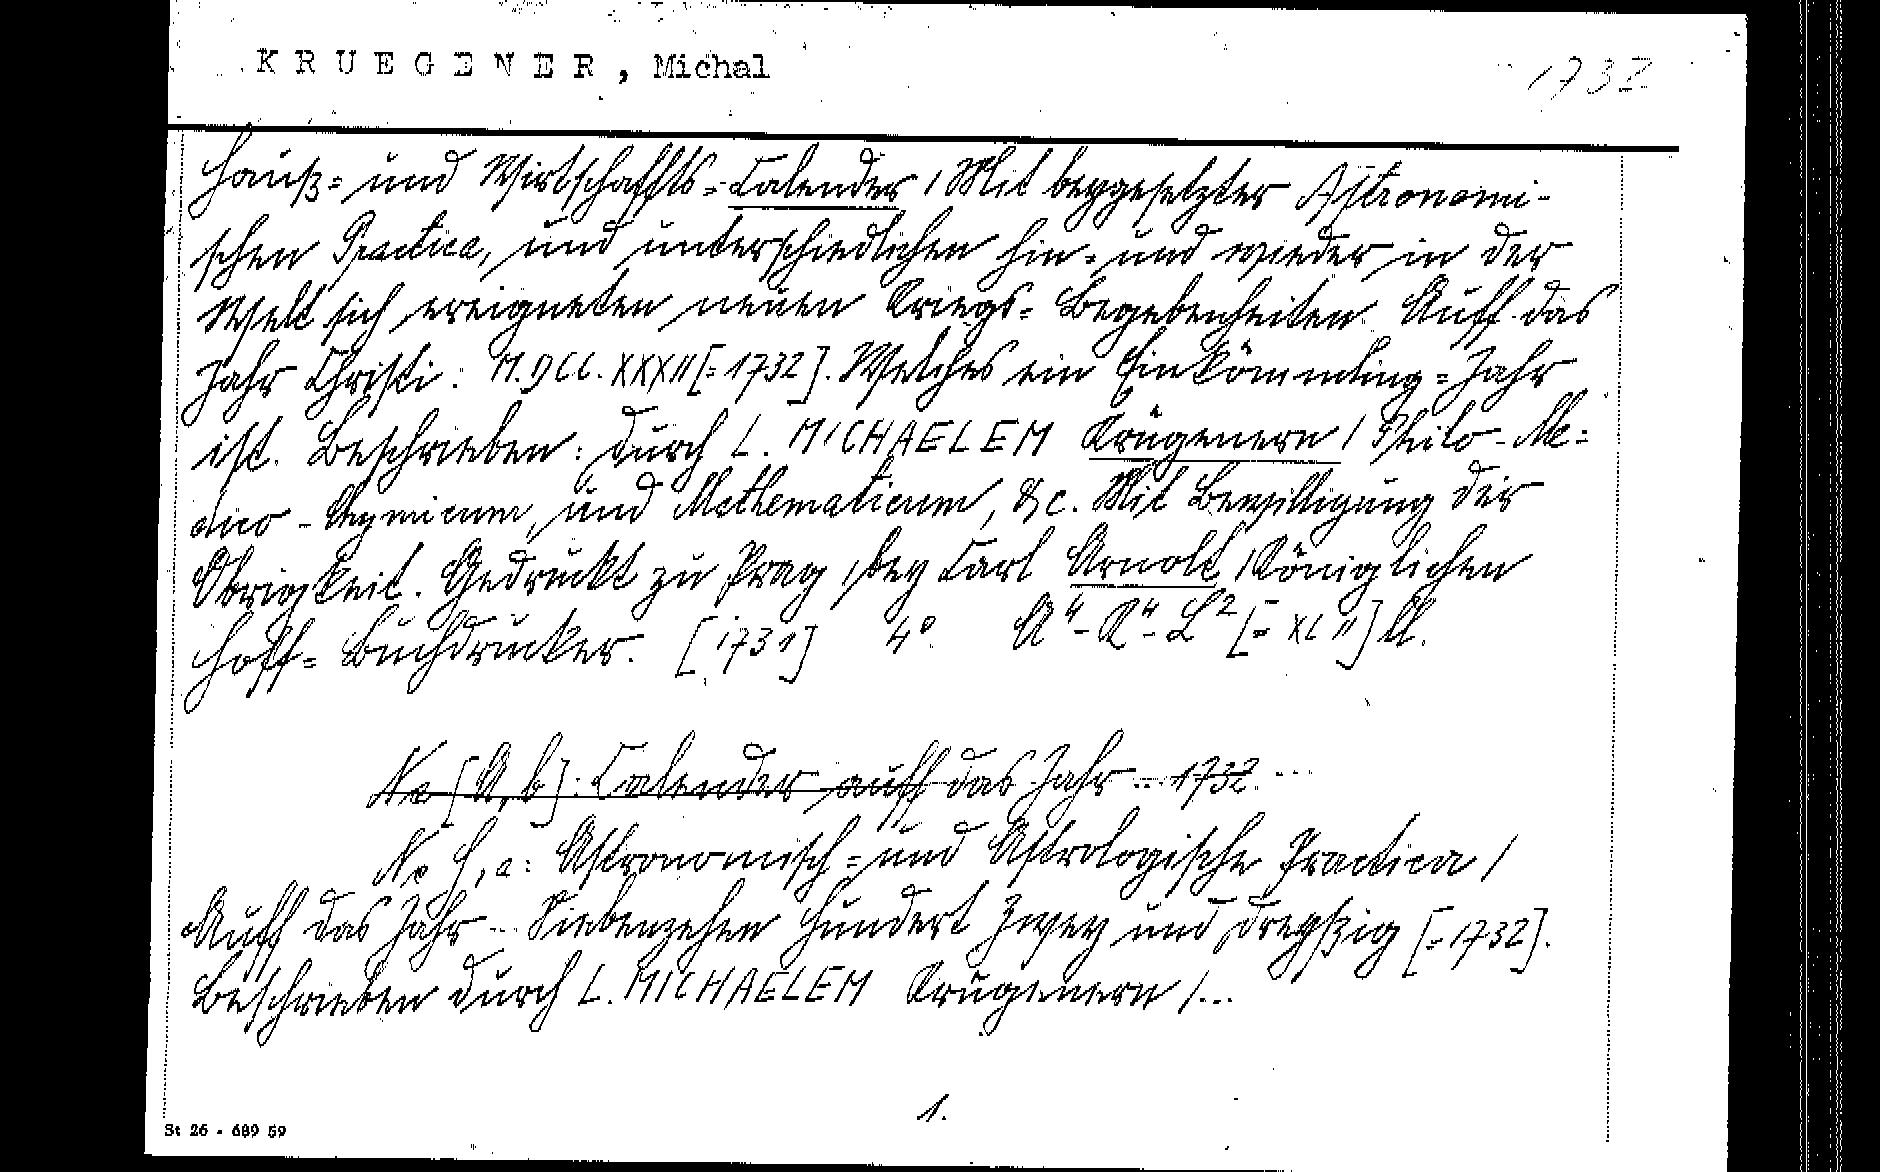 KRUEGENER, Michal 1732
Hauß= und Wirtschaffts=Calender / Mit beygesetzter Astronomi-
schen Practica, und unterschiedlichen hin= und wieder in der
Welt sich ereigneten neuen Kriegs=Begebenheiten. Auff das
Jahr Christi: M.DCC.XXXII[=1732]. Welches ein Einkömmling=Jahr
ist. Beschrieben: durch L. MICHAELEM Krügenern / Philo-Me=
dico-Chymicum, und Mathematicum, &c. Mit Bewilligung der
Obrigkeit. Gedruckt zu Prag / bey Carl Arnolt / Königlichen
Hoff=Buchdrucker. [1731] 4°. A⁴-K⁴-L² [= XLII] ll.
Na [A,b]: Calender auff das Jahr ... 1732. ...
Na f,a: Astronomisch= und Astrologische Practica /
Auff das Jahr ... Siebenzehen Hundert Zwey und dreyßig [=1732].
Beschrieben durch L. MICHAELEM Krügenern / ...
1.
St 26 - 689 59